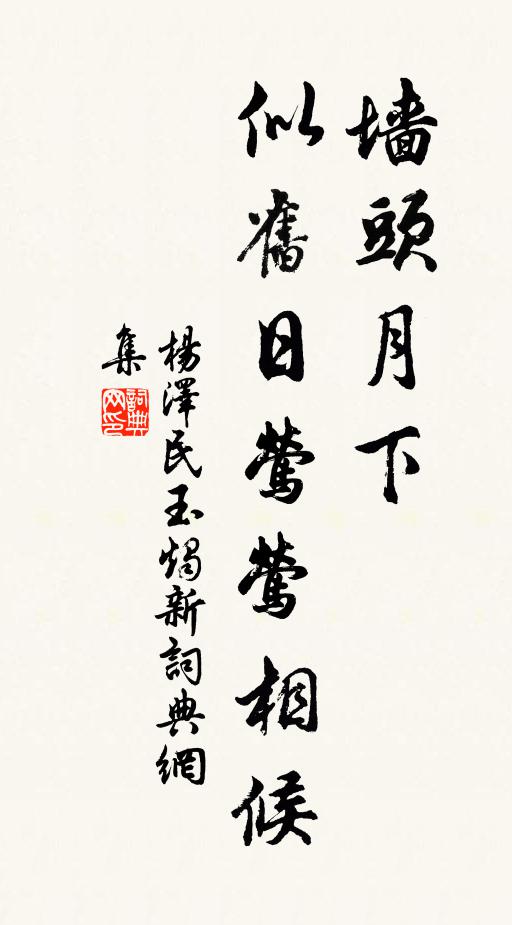 墙頭月下
似舊日鶯鶯相候
楊澤民玉燭新詞典網
集
詞典
网印